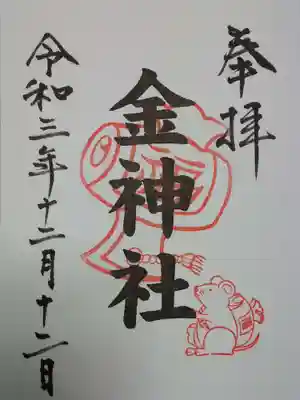 奉拝
金神社
令和三年十二月十二日